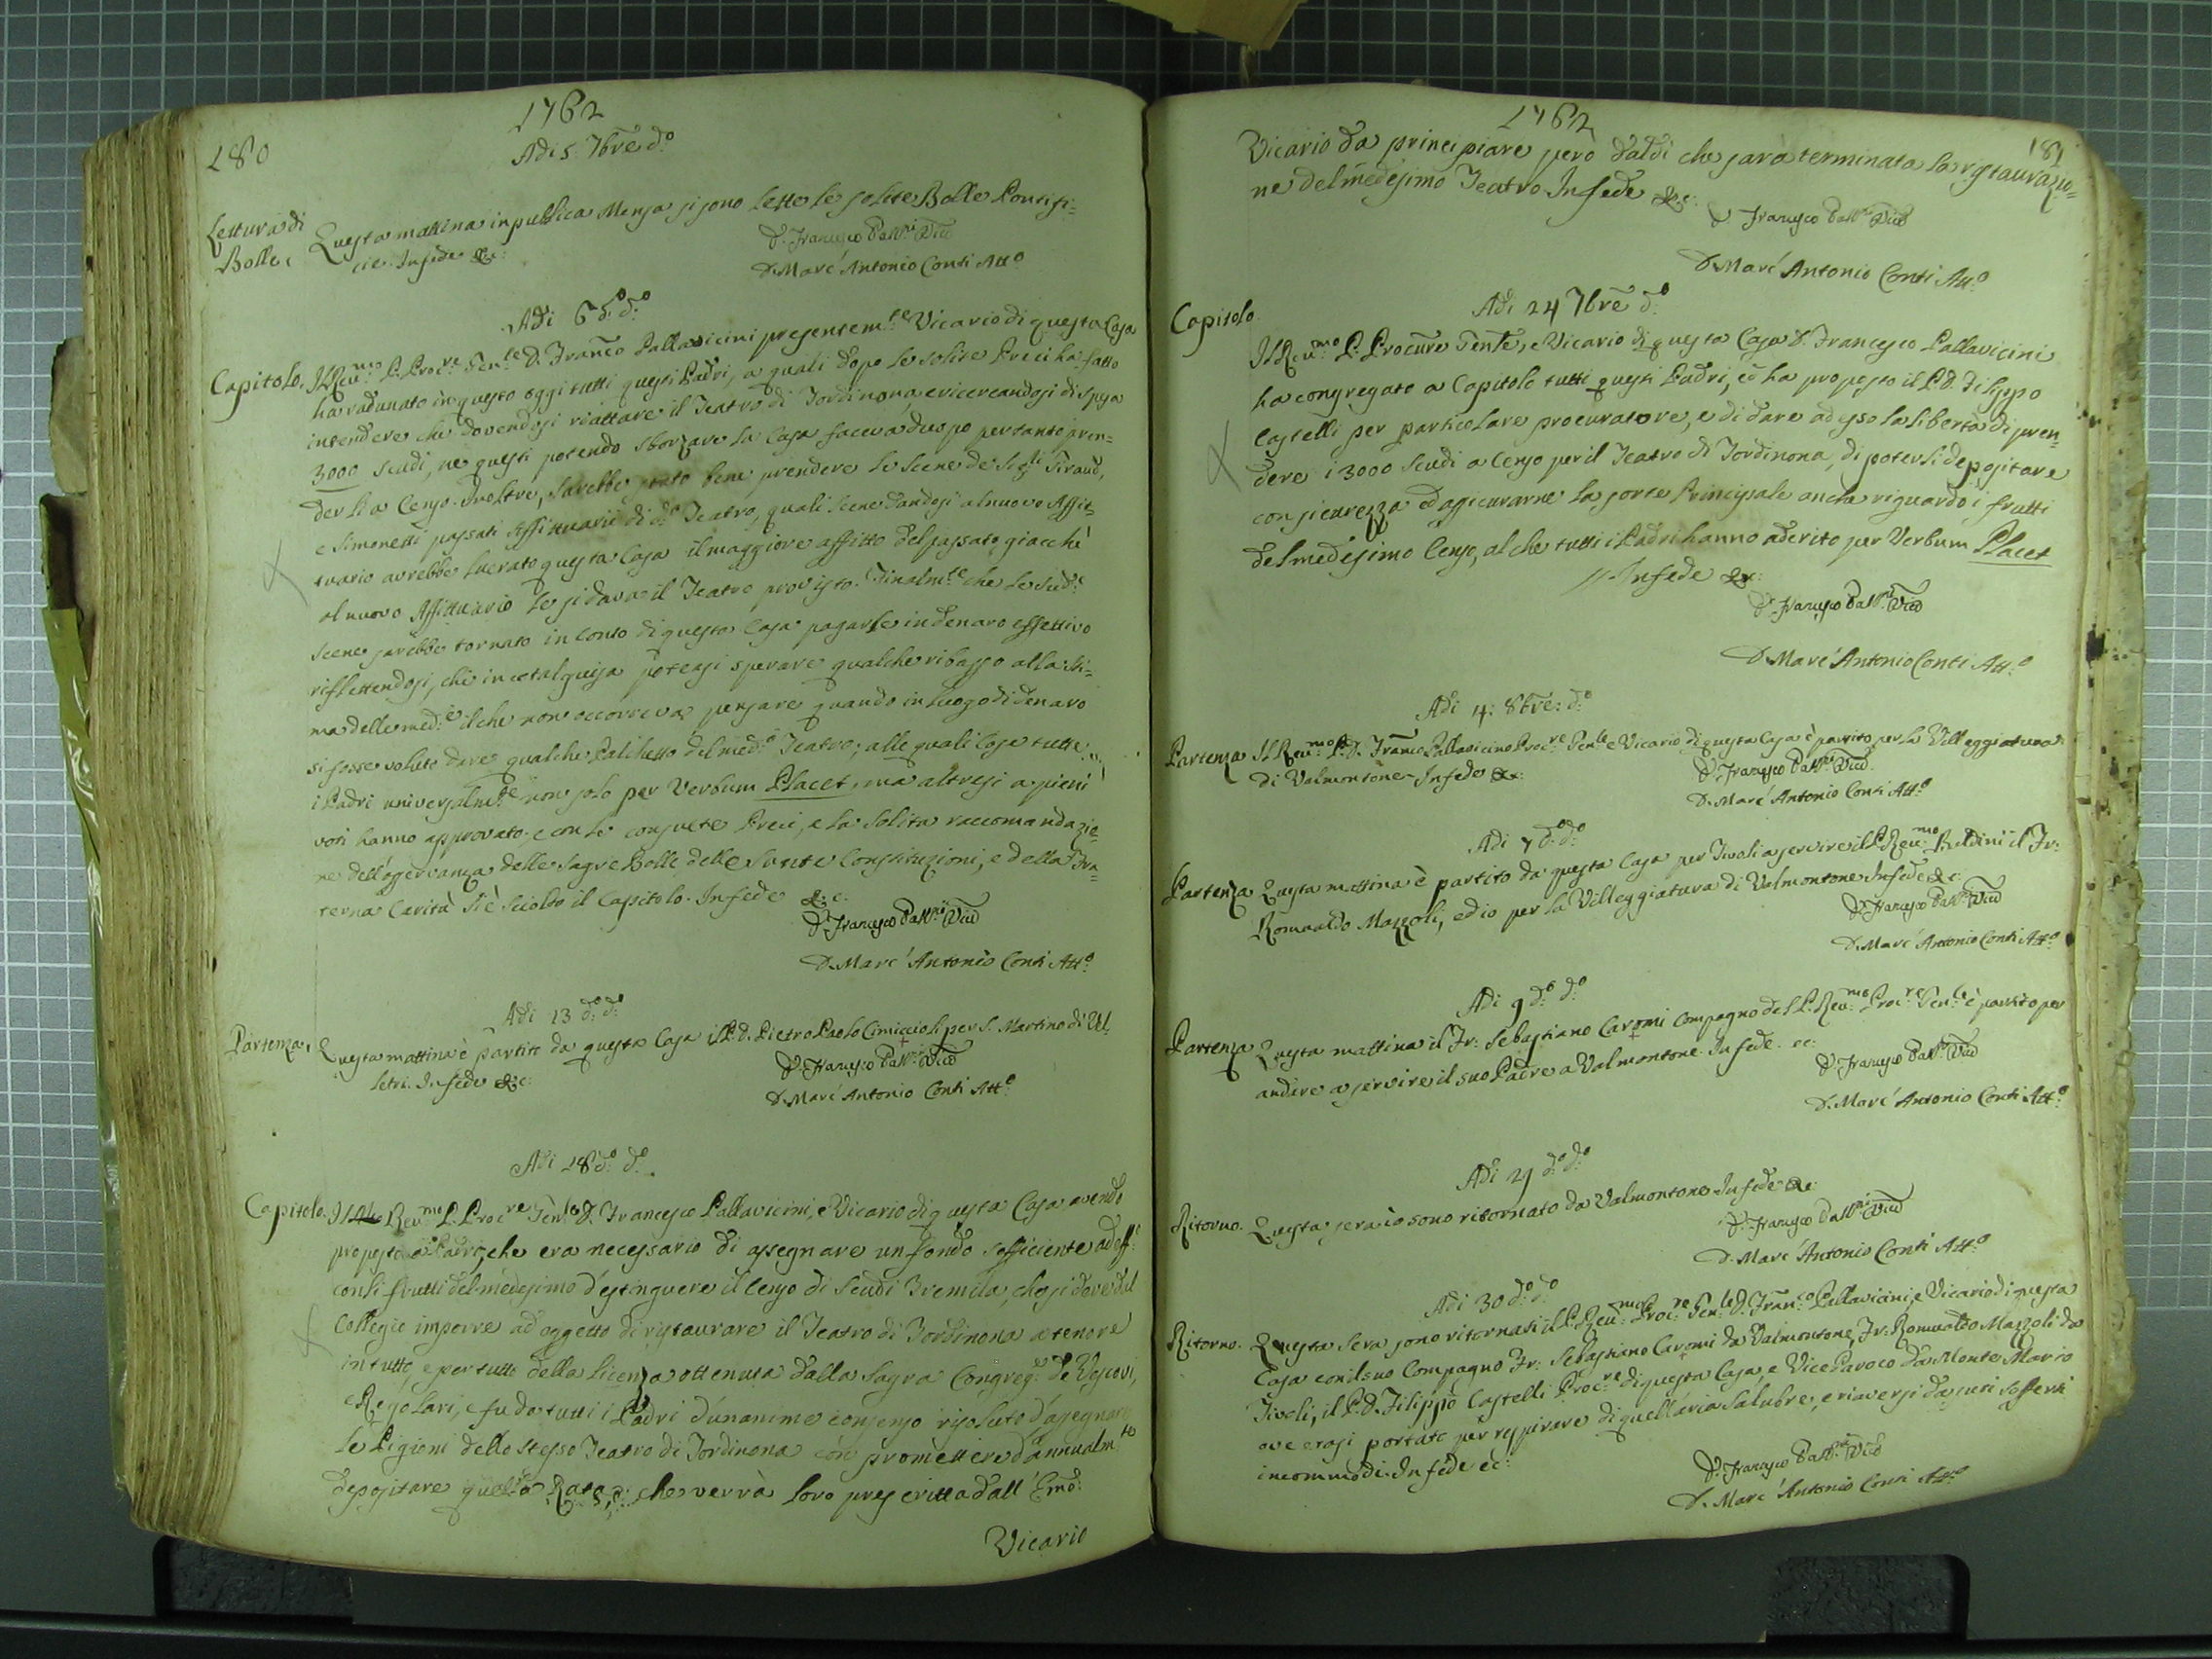 1762
180
Adi 5: 7bre d.o
Lettura di
Bolle.
Questa mattina in publica Mensa si sono lette le solite Bolle Pontifi-
cie. In fede &c:
D. Francesco Pall.ni Vic.o
D. Marc'Antonio Conti Att.o
Adi 6 d.o d.o
Capitolo.
Il Rev.mo P. Proc.re Gen.le D. Fran.co Pallavicini presentem.te Vicario di questa Casa
ha radunato in questo oggi tutti questi Padri, a quali dopo le solite Preci ha fatto
intendere che dovendosi riattare il Teatro di Tordinona, e ricercandosi di spesa
3000 scudi, nè questi potendo sborzare la Casa faceva d'uopo pertanto pren-
derli a Censo. Inoltre, sarebbe stato bene prendere le Scene de Sig.ri Giraud,
e Simonetti passati Affittuarii di d.o Teatro, quali Scene dandosi al nuovo Affit-
tuario avrebbe lucrato questa Casa il maggiore affitto del passato, giacchè
al nuovo Affittuario le si dava il Teatro provisto. Finalm.te che le sud.e
Scene sarebbe tornato in conto di questa Casa pagarle in denaro effettivo
riflettendosi, che in cotal guisa potersi sperare qualche ribasso alla sti-
ma delle med.e il che non occorreva pensare quando in luogo di denaro
si fosse voluto dare qualche Palchetto del med.o Teatro; alle quali Cose tutte
i Padri universalm.te non solo per Verbum Placet, ma altresi a pieni
voti hanno approvato; e con le consuete Preci, e la solita raccomandazio-
ne dell'osservanza delle Sagre Bolle, delle Sante Constituzioni, e della Fra-
terna Carità si è sciolto il Capitolo. In fede &c:
D. Francesco Pall.ni Vic.o
D. Marc'Antonio Conti Att.o
Adi 13 d.o d.o
Partenza.
Questa mattina è partito da questa Casa il P. D. Pietro Paolo Cimiccioli per S. Martino di Vel-
letri. In fede &c:
D. Francesco Pall.ni Vic.o
D. Marc'Antonio Conti Att.o
Adi 18 d.o d.o
Capitolo.
Il Rev.mo P. Proc.re Gen.le D. Francesco Pallavicini, e Vicario di questa Casa avendo
proposto a Padri, che era necessario di assegnare un fondo sofficiente ad eff.o
con li frutti del medesimo d'estinguere il Censo di Scudi Tremila, che si deve dal
Collegio imporre ad oggetto di ristaurare il Teatro di Tordinona a tenore
in tutto, e per tutto della licenza ottenuta dalla Sagra Congreg.e de Vescovi,
e Regolari, e fu da tutti i Padri d'unanime consenso risoluto d'assegnare
le Pigioni dello stesso Teatro di Tordinona con promettere d'annualm.te
depositare quella Rata, che verrà loro prescritta dall'Emo:
Vicario
1762
181
Vicario da principiare però dal dì che sarà terminata la ristaurazio-
ne del medesimo Teatro. In fede &c:
D. Francesco Pall.ni Vic.o
D. Marc'Antonio Conti Att.o
Adi 24 7bre d.o
Capitolo
Il Rev.mo P. Procure Gen.le, e Vicario di questa Casa D. Francesco Pallavicini
ha congregato a Capitolo tutti questi Padri, ed ha proposto il P. D. Filippo
Castelli per particolare procuratore, e di dare ad esso la libertà di pren-
dere i 3000 scudi a Censo per il Teatro di Tordinona, di potersi depositare
con sicurezza ed assicurarne la sorte Principale anche riguardo i frutti
del medesimo Censo, al che tutti i Padri hanno aderito per Verbum Placet
// In fede &c:
D. Francesco Pall.ni Vic.o
D. Marc'Antonio Conti Att.o
Adi 4: 8bre: d.o
Partenza
Il Rev.mo P. D. Fran.co Pallavicino Proc.re Gen.le e Vicario di questa Casa è partito per la Villeggiatura
di Valmontone. In fede &c:
D. Francesco Pall.ni Vic.o
D. Marc'Antonio Conti Att.o
Adi 7 d.o d.o
Partenza
Questa mattina è partito da questa Casa per Tivoli a servire il P. Rev.mo Baldini il Fr:
Romualdo Mazzoli, ed io per la Villeggiatura di Valmontone. In fede &c:
D. Francesco Pall.ni Vic.o
D. Marc'Antonio Conti Att.o
Adi 9 d.o d.o
Partenza
Questa mattina il Fr: Sebastiano Caromi Compagno del P. Rev.mo Proc.re Gen.le è partito per
andare a servire il suo Padre a Valmontone. In fede. ec:
D. Francesco Pall.ni Vic.o
D. Marc'Antonio Conti Att.o
Adi 29 d.o d.o
Ritorno.
Questa sera io sono ritornato da Valmontone. In fede &c:
D. Francesco Pall.ni Vic.o
D. Marc'Antonio Conti Att.o
Adi 30 d.o d.o
Ritorno.
Questa sera sono ritornati il P. Rev.mo Proc.re Gen.le D. Fran.co Pallavicini, e Vicario di questa
Casa con il suo Compagno Fr: Sebastiano Caromi da Valmontone, Fr: Romualdo Mazzoli da
Tivoli, il P. D. Filippo Castelli Proc.re di questa Casa, e Vice Paroco da Monte Mario
ove erasi portato per respirare di quell'aria salubre, e riaversi da suoi sofferti
incommodi. In fede ec:
D. Francesco Pall.ni Vic.o
D. Marc'Antonio Conti Att.o